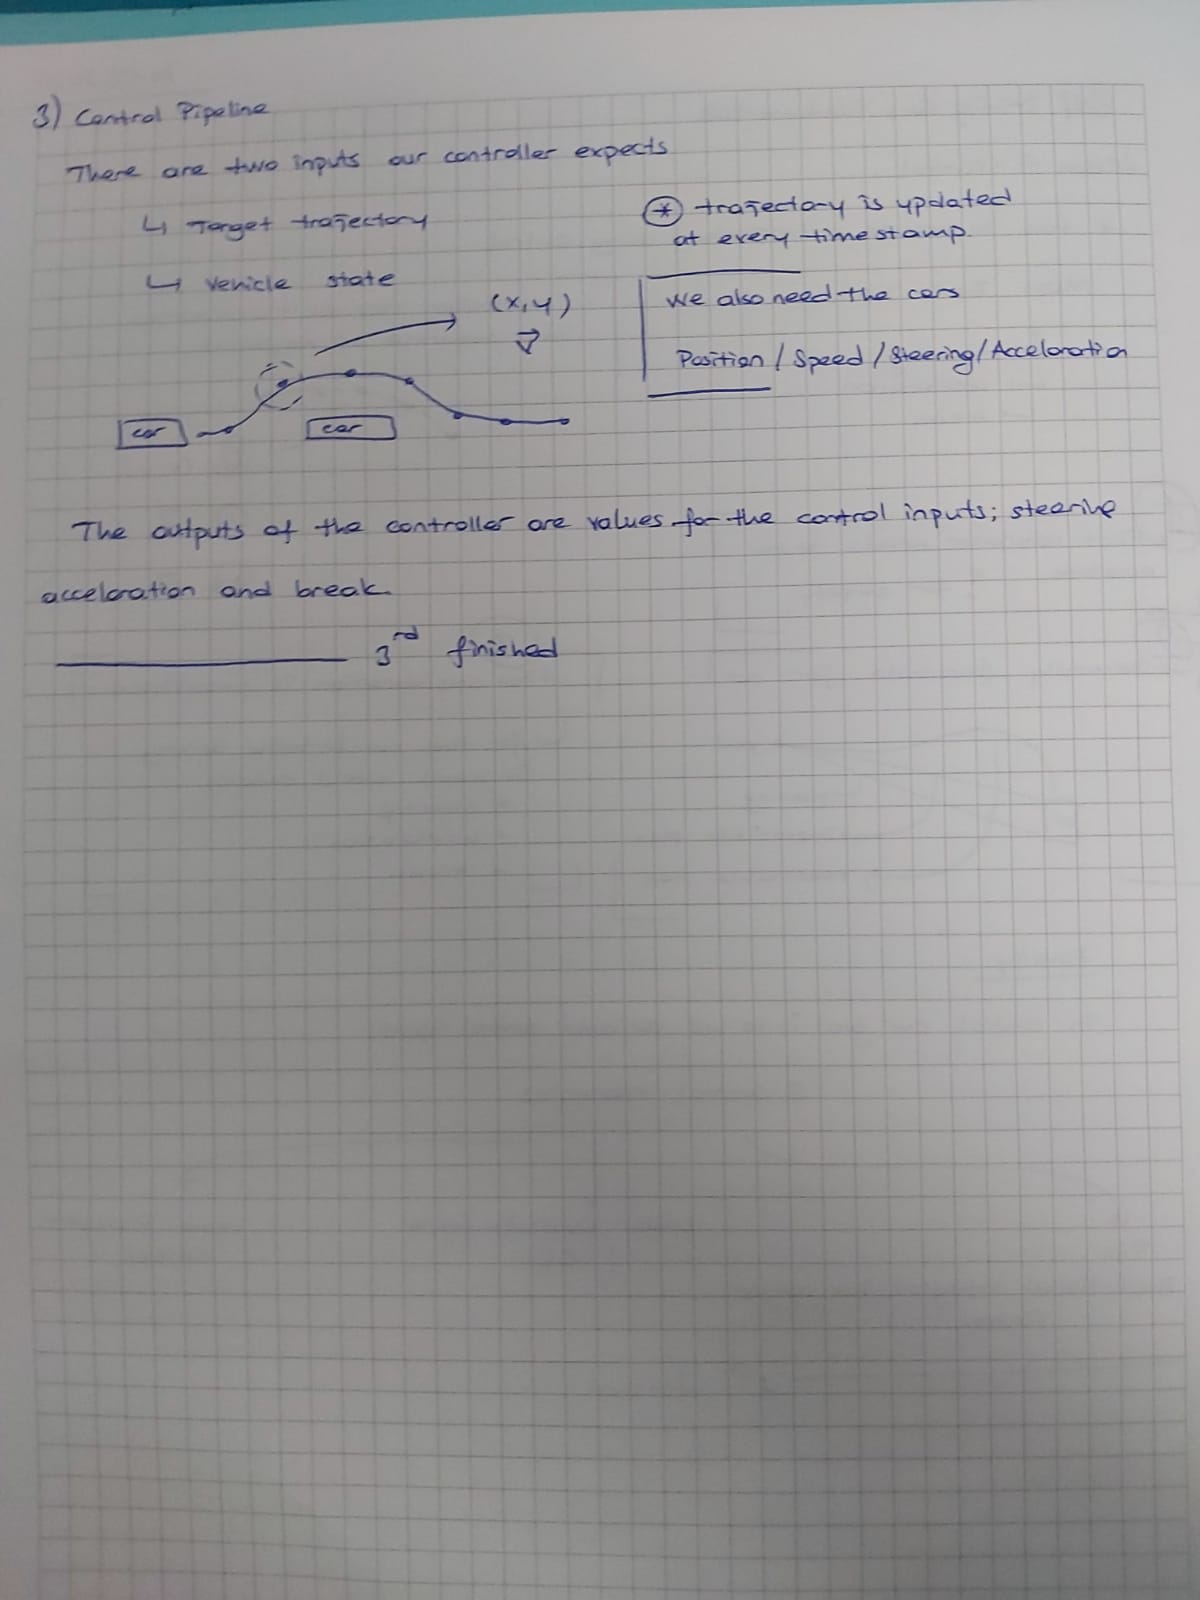 3) Control Pipeline
There are two inputs our controller expects
↳ Target trajectory
↳ Vehicle state
⊛ trajectory is updated
at every timestamp.
We also need the cars
Position / Speed / Steering / Acceloration
(x,y)
car
car
The outputs of the controller are values for the control inputs; steering
acceloration and break.
3rd finished